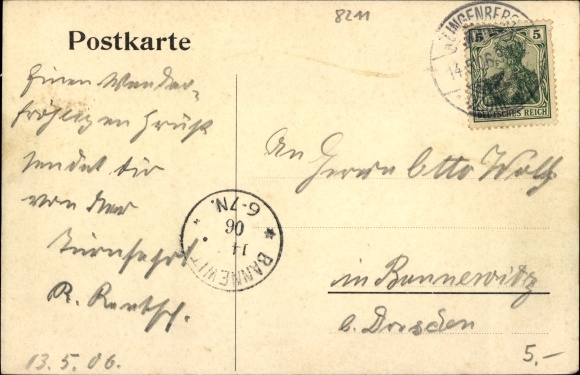 8211
Postkarte
Einen Wander-
fröhlichen Gruß
sendet dir
von der
Turnfahrt
R. Rentsch.
13.5.06.
KLINGENBERG
14
5 5
DEUTSCHES REICH
An Herrn Otto Wolf
in Bannewitz
b. Dresden
BANNEWITZ
14
06
6-7N.
5.-